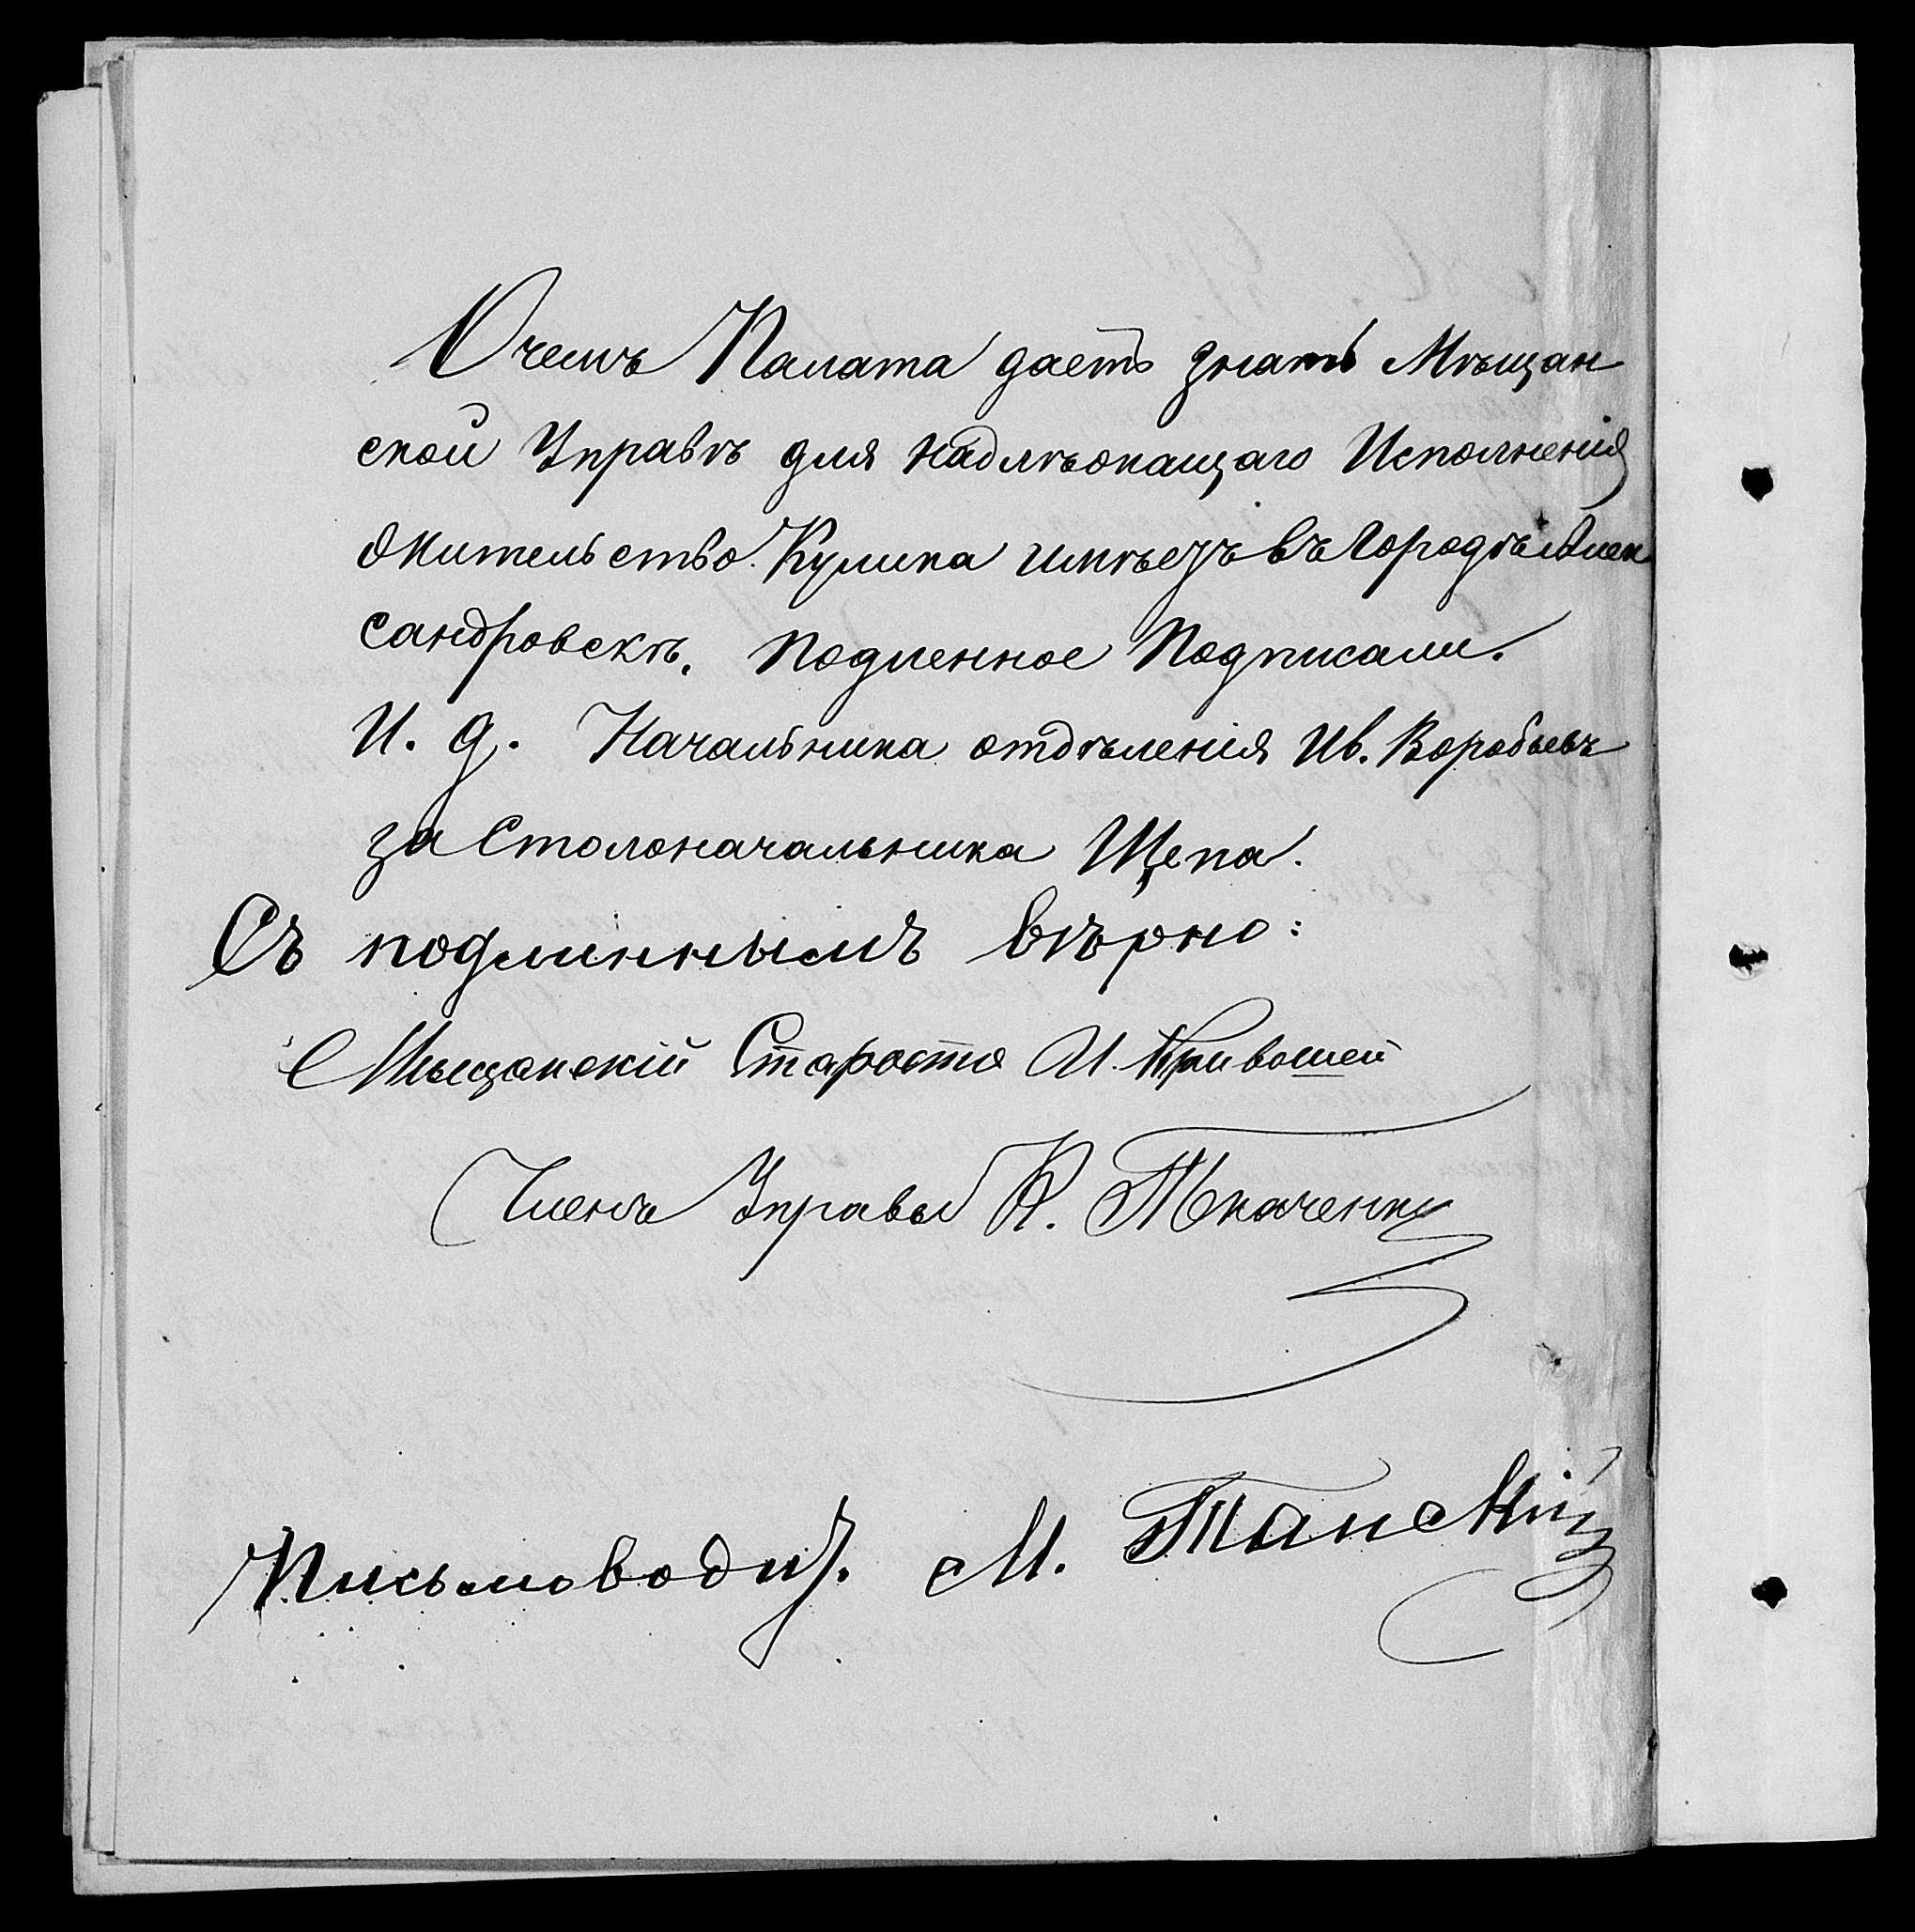 О чемъ Палата даетъ знать Мѣщан
ской Управѣ для надлѣжащаго Исполненія
жительство Кулика имѣетъ въ Городѣ Алек
сандровскѣ. Подленное Подписали.
И. д. Начальника отдѣленія Ив. Воробьевъ
за Столоначальника Щепа.
Съ подлиннымъ вѣрно:
Мѣщанскій Староста И. Кривошей
Членъ Управы К. Ткаченко
Письмовод. М. Танскій